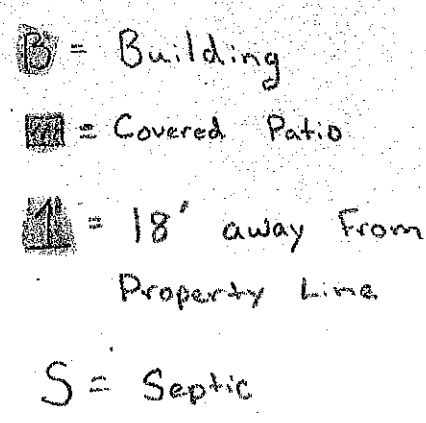 B = Building
= Covered Patio
1 = 18' away From
Property Line
S = Septic